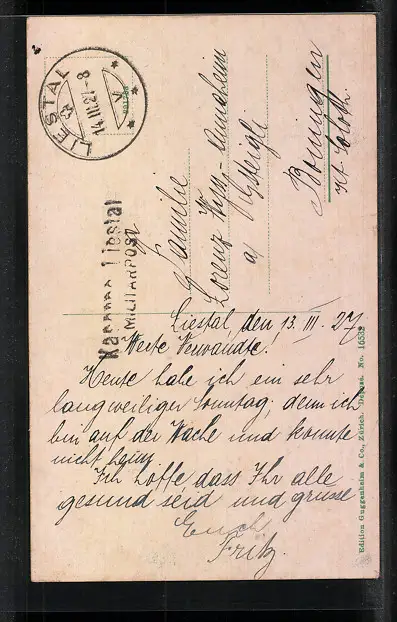 LIESTAL
14.III.27-8
Kaserne Liestal
MILITÄRPOST
Familie
Lorenz
a/
Boningen
Kt. Soloth.
Liestal, den 13. III. 27.
Werte Verwandte!
Heute habe ich ein sehr
langweiliger Sonntag, denn ich
bin auf der Wache und konnte
nicht heim
Ich hoffe dass Ihr alle
gesund seid und grüsse
Euch
Fritz.
Edition Guggenheim & Co., Zürich. Dépose. No. 16532